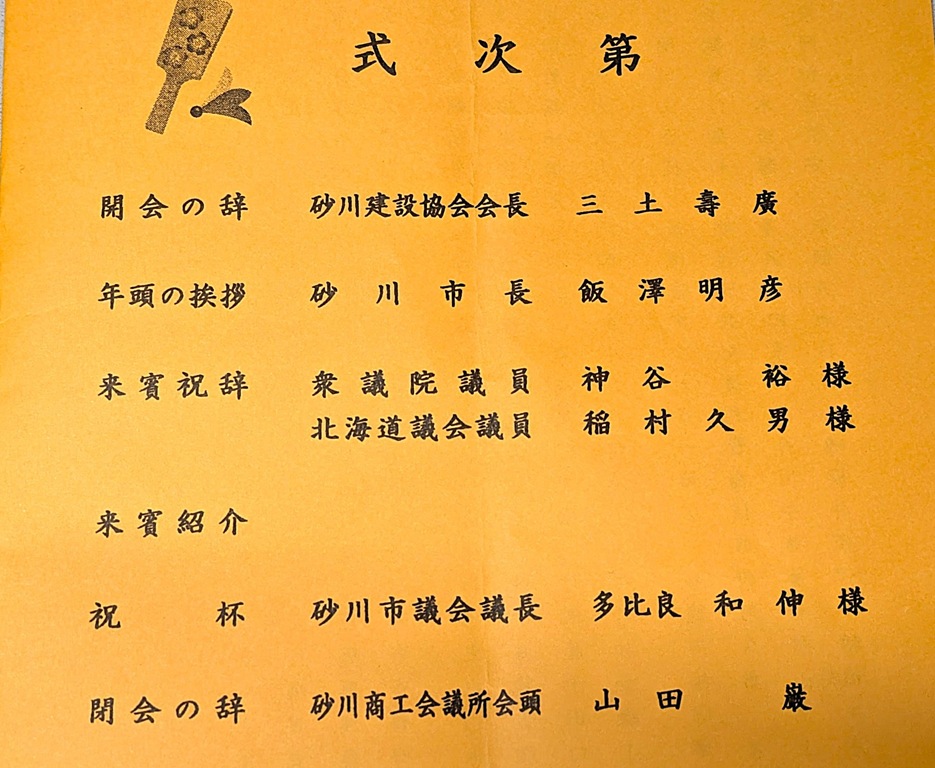 式次第
開会の辞 砂川建設協会会長 三土壽廣
年頭の挨拶 砂川市長 飯澤明彦
来賓祝辞 衆議院議員 神谷裕様
北海道議会議員 稲村久男様
来賓紹介
祝杯 砂川市議会議長 多比良和伸様
閉会の辞 砂川商工会議所会頭 山田巌